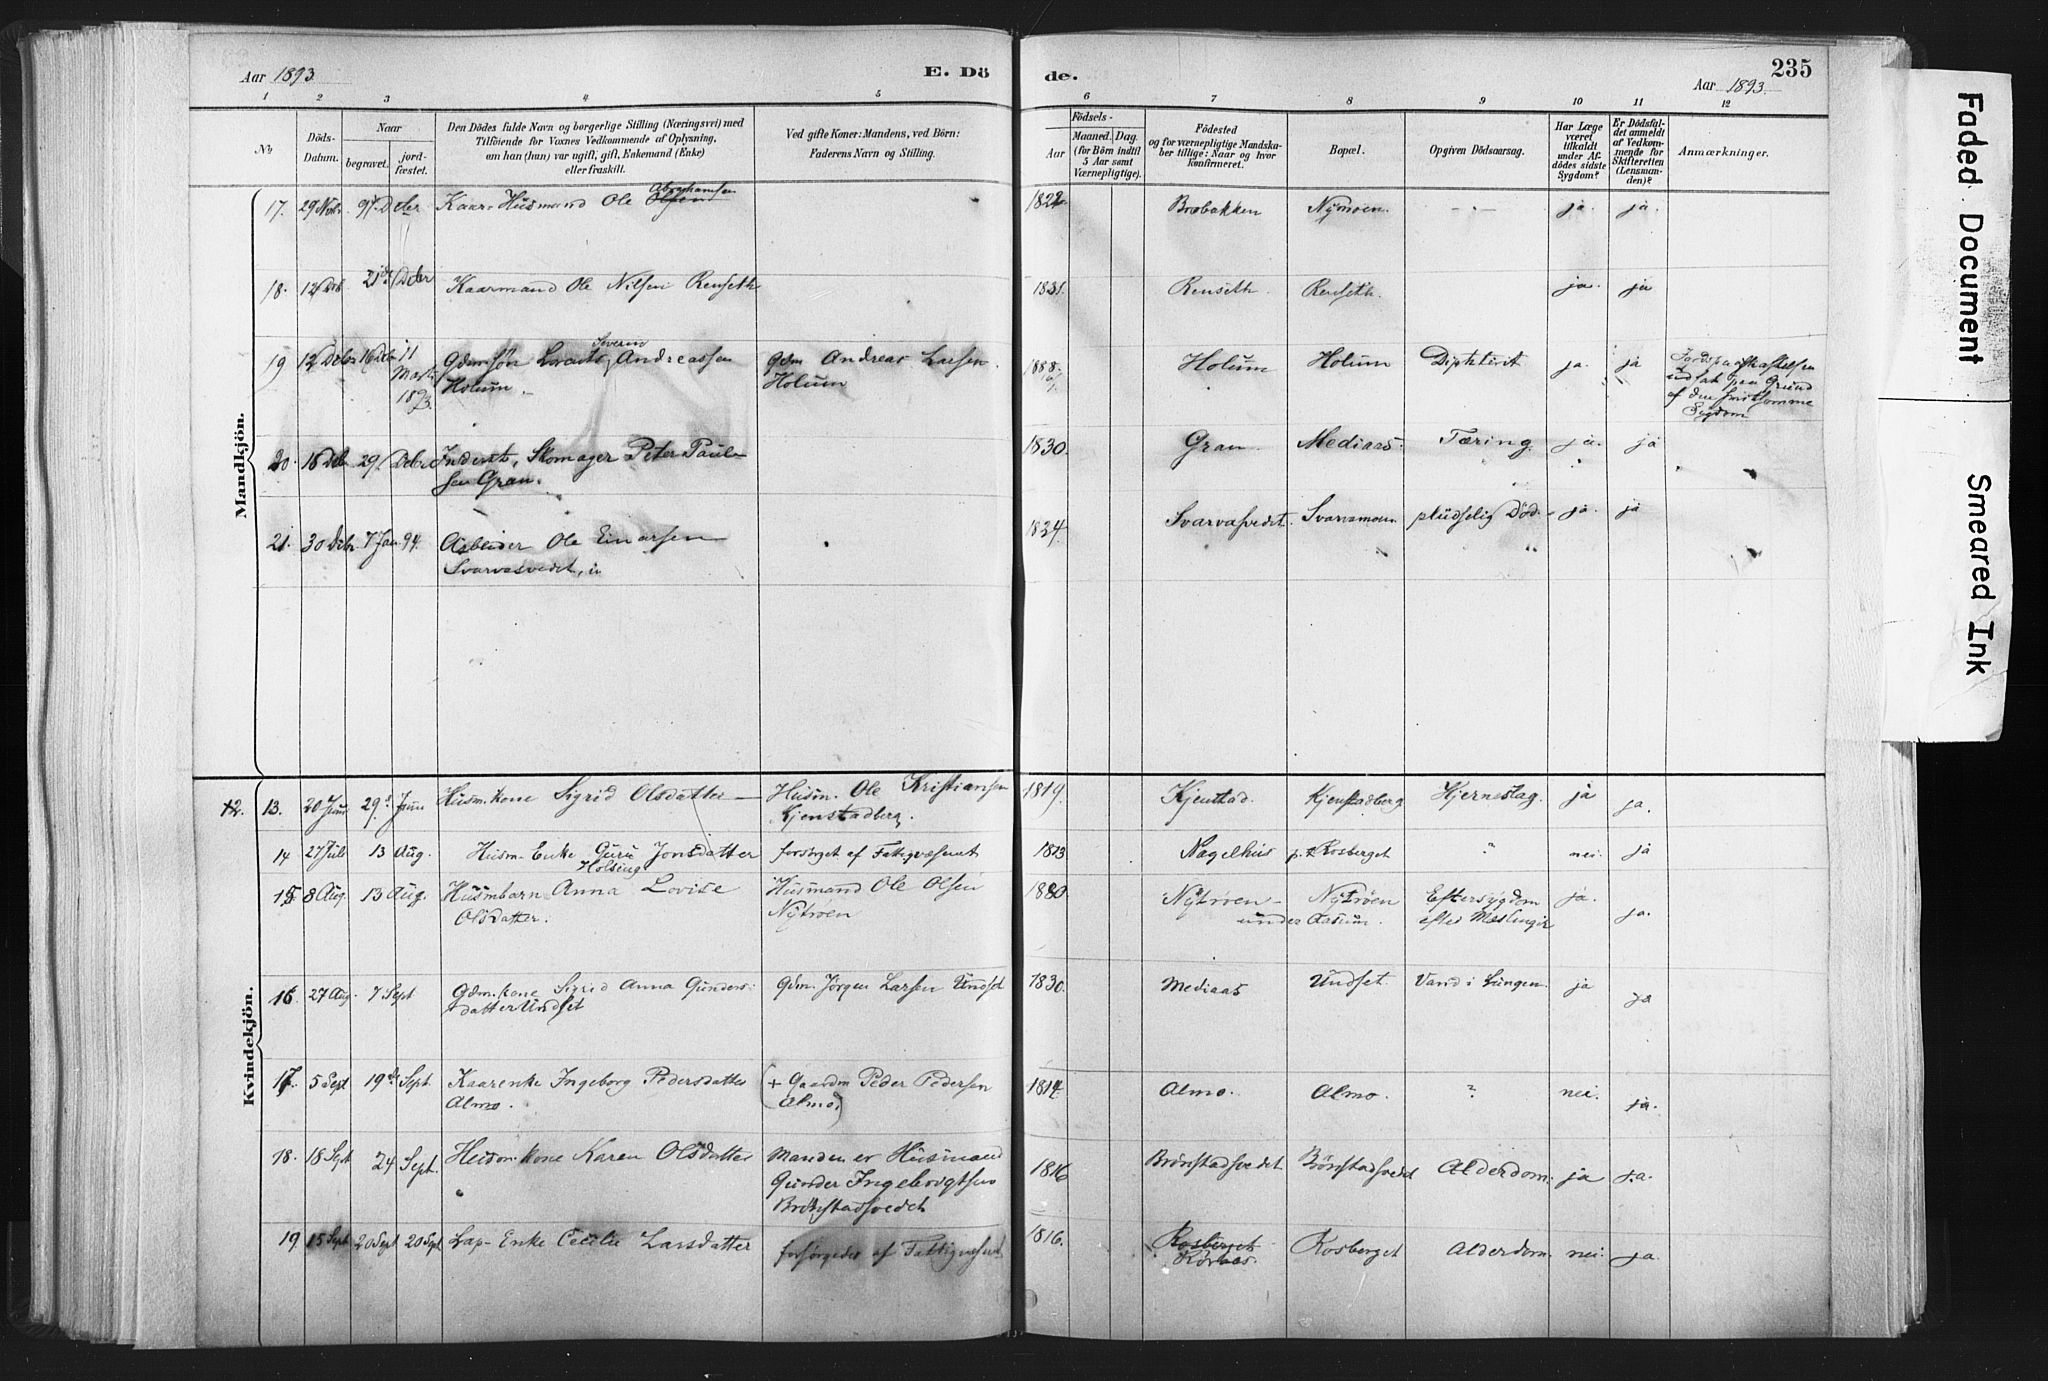 Aar 1893.
E. Dö
de.
235
Aar 1893.
1 2 3 4 5 6 7 8 9 10 11 12
№
Döds-Datum.
Naar
begravet.
jord-fæstet.
Den Dödes fulde Navn og borgerlige Stilling (Næringsvei) med
Tilföiende for Voxnes Vedkommende af Oplysning,
om han (hun) var ugift, gift, Enkemand (Enke)
eller fraskilt.
Ved gifte Koner: Mandens, ved Börn:
Faderens Navn og Stilling.
Födsels-
Aar
Maaned. Dag.
(for Börn indtil
5 Aar samt
Værnepligtige).
Födested
og for værnepligtige Mandska-
ber tillige: Naar og hvor
konfirmeret.
Bopæl.
Opgiven Dödsaarsag.
Har Læge
været
tilkaldt
under Af-
dödes sidste
Sygdom?
Er Dödsfal-
det anmeldt
af Vedkom-
mende for
Skifteretten
(Lensman-
den)?
Anmærkninger.
Mandkjön.
17. 29 Nvbr. 9de Dcbr Kaar-Husmand Ole Olsen Abrahamsen 1822 Brobakken Nymoen. - - ja. ja.
18. 12 Dcb 21de Dcbr Kaarmand Ole Nilsen Renseth 1831. Renseth. Renseth. ja. ja
19 12 Dcbr 16 Dcbr 11
Marts
1893.
Gdm.søn Lorents Severin Andreassen
Holum.
Gdm Andreas Larsen
Holum
1888. Holum Holum Diphterit ja. ja
Jordspaakastelsen
udsat paa Grund
af den smitsomme
Sygdom
20. 16 Dcbr 29 Dcbr Inderst, Skomager Peter Paul-
sen Gran.
1830. Gran Mediaas. Tæring ja. ja
21. 30 Dcbr 7 Jan 94. Arbeider Ole Einarsen
Svarvasvedet, u
1834. Svarvasvedet. Svarvamoen. pludselig Död. ja. ja
Kvindekjön.
12. 13. 20 Juni 29de Juni Husm.kone Sigrid Olsdatter Husm. Ole Kristiansen
Kjenstadberg.
1819. Kjenstad. Kjenstadberg Hjerneslag. ja ja.
14 27 Juli 13 Aug. Husm. Enke Guru Jonsdatter
Holsing
forsörget af Fattigvæsenet
1813 Nagelhus Rosberget ? nei. ja
15 8 Aug. 13 Aug. Husmbarn Anna Lovise
Olsdatter.
Husmand Ole Olsen
Nytröen
1880. Nytröen - Nytröen
under Aasum.
Eftersygdom
efter Meslinger
ja. ja.
16. 27 Aug. 7 Sept Gdm.kone Sigrid Anna Gunders-
datter Undset
Gdm. Jörgen Larsen Undset
1830. Mediaas Undset. Vand i Lungen. ja ja
17. 5 Sept 19de Sept Kaarenke Ingeborg Pedersdatter
Almo.
(+ Gaardm Peder Pedersen
Almo.)
1814. Almo. Almo. ? nei. ja.
18. 18 Sept 24 Sept. Husm.kone Karen Olsdatter
Manden er Husmand
Gunder Ingebrigtsen
Brönstadsvedet
1816 Brönstadsvedet Brönstadsvedet Alderdom. ja ja.
19 15 Sept 20 Sept 20 Sept Lap-Enke Cecilie Larsdatter
forsörgedes af Fattigvæsenet.
1816. Rosberget
Rosberget Alderdom. nei. ja.
Faded Document
Smeared Ink